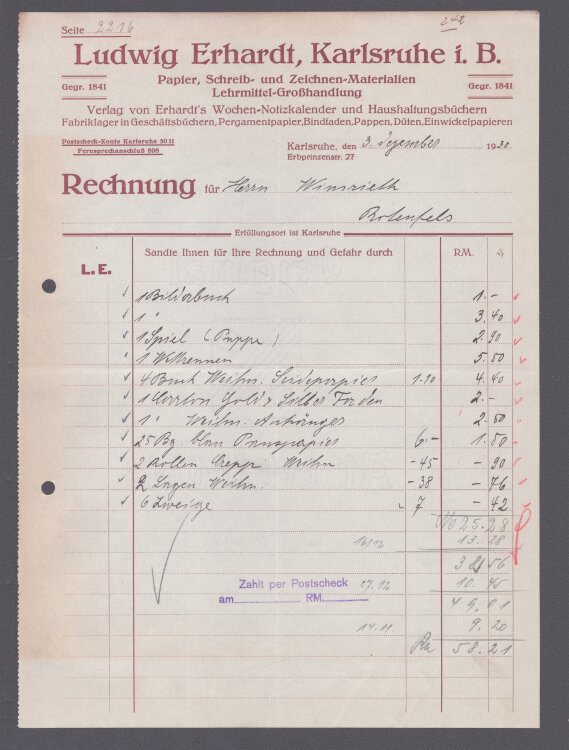 Seite 2216
242
Ludwig Erhardt, Karlsruhe i. B.
Gegr. 1841
Papier, Schreib- und Zeichnen-Materialien
Lehrmittel-Großhandlung
Gegr. 1841
Verlag von Erhardt's Wochen-Notizkalender und Haushaltungsbüchern
Fabriklager in Geschäftsbüchern, Pergamentpapier, Bindfaden, Pappen, Düten, Einwickelpapieren
Postscheck-Konto Karlsruhe 50 11
Fernsprechanschluß 898
Karlsruhe, den 3. Dezember 1930
Erbprinzenstr. 27
Rechnung für Herrn
Rotenfels
Erfüllungsort ist Karlsruhe
L. E.
Sandte Ihnen für Ihre Rechnung und Gefahr durch
RM. ₰
1 Bilderbuch 1.-
1 " 3.40
1 Spiel (Puppe) 2.90
1 Wettrennen 5.50
4 Buch Weihn. Seidenpapier 1.10 4.40
1 Gold & Silber Faden 2.-
1 " Weihn. Anhänger 2.50
25 Bg. blau Pauspapier 6.- 1.50
2 Rollen Crepp Weihn - 45 - 90
2 Lagen Weihn. - 38 - 76
6 Zweige " 7 - 42
25.28
16/12 13.28
38 56
Zahlt per Postscheck
27.12 10.45
am RM.
49,01
14.11. 9.20
58.21